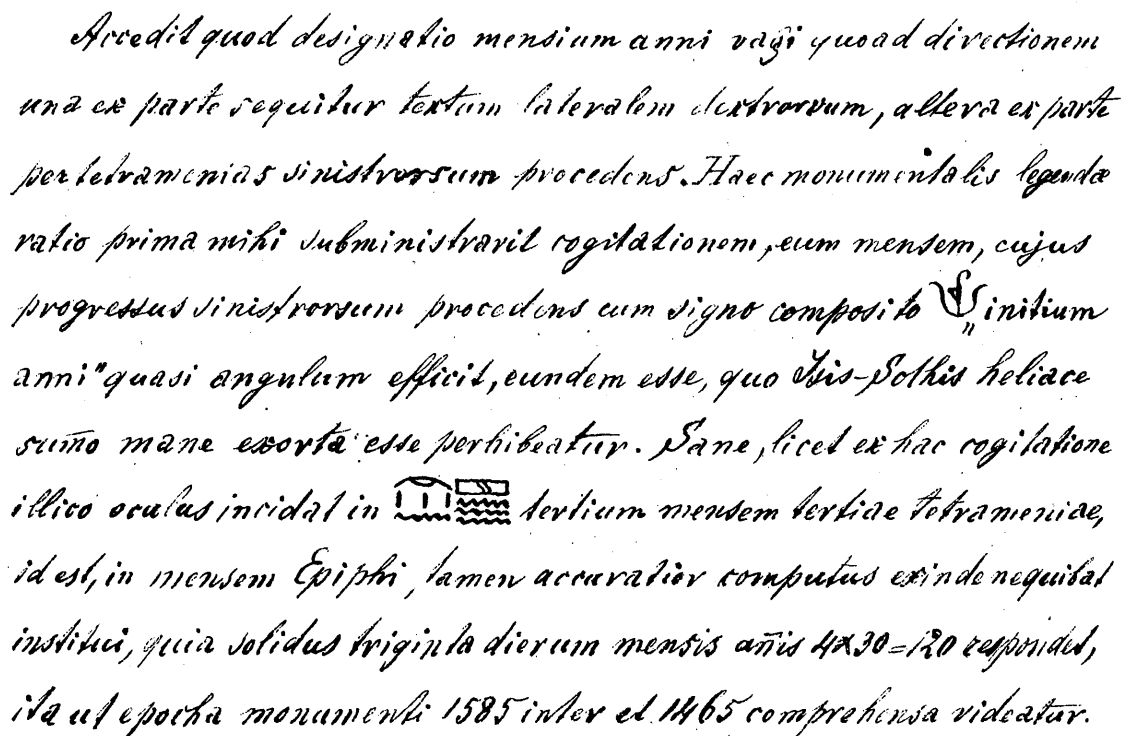 Accedit quod designatio mensium anni vagi quoad directionem
una ex parte sequitur textum lateralem dextrorsum, altera ex parte
per tetramenias sinistrorsum procedens. Haec monumentalis legendæ
ratio prima mihi subministravit cogitationem, eum mensem, cujus
progressus sinistrorsum procedens cum signo composito „initium
anni" quasi angulum efficit, eundem esse, quo Isis-Sothis heliace
sum̄o mane exorta esse perhibeatur. Sane, licet ex hac cogitatione
illico oculus incidat in tertium mensem tertiae tetrameniae,
id est, in mensem Epiphi, tamen accuratior computus exinde nequibat
institui, quia solidus triginta dierum mensis an̄is 4x30=120 respondet,
ita ut epocha monumenti 1585 inter et 1465 comprehensa videatur.